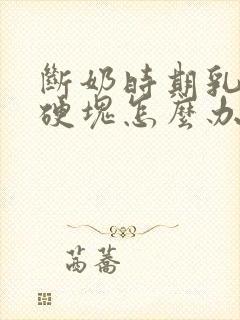 斷奶時期乳
硬塊怎麼办
茼蒿